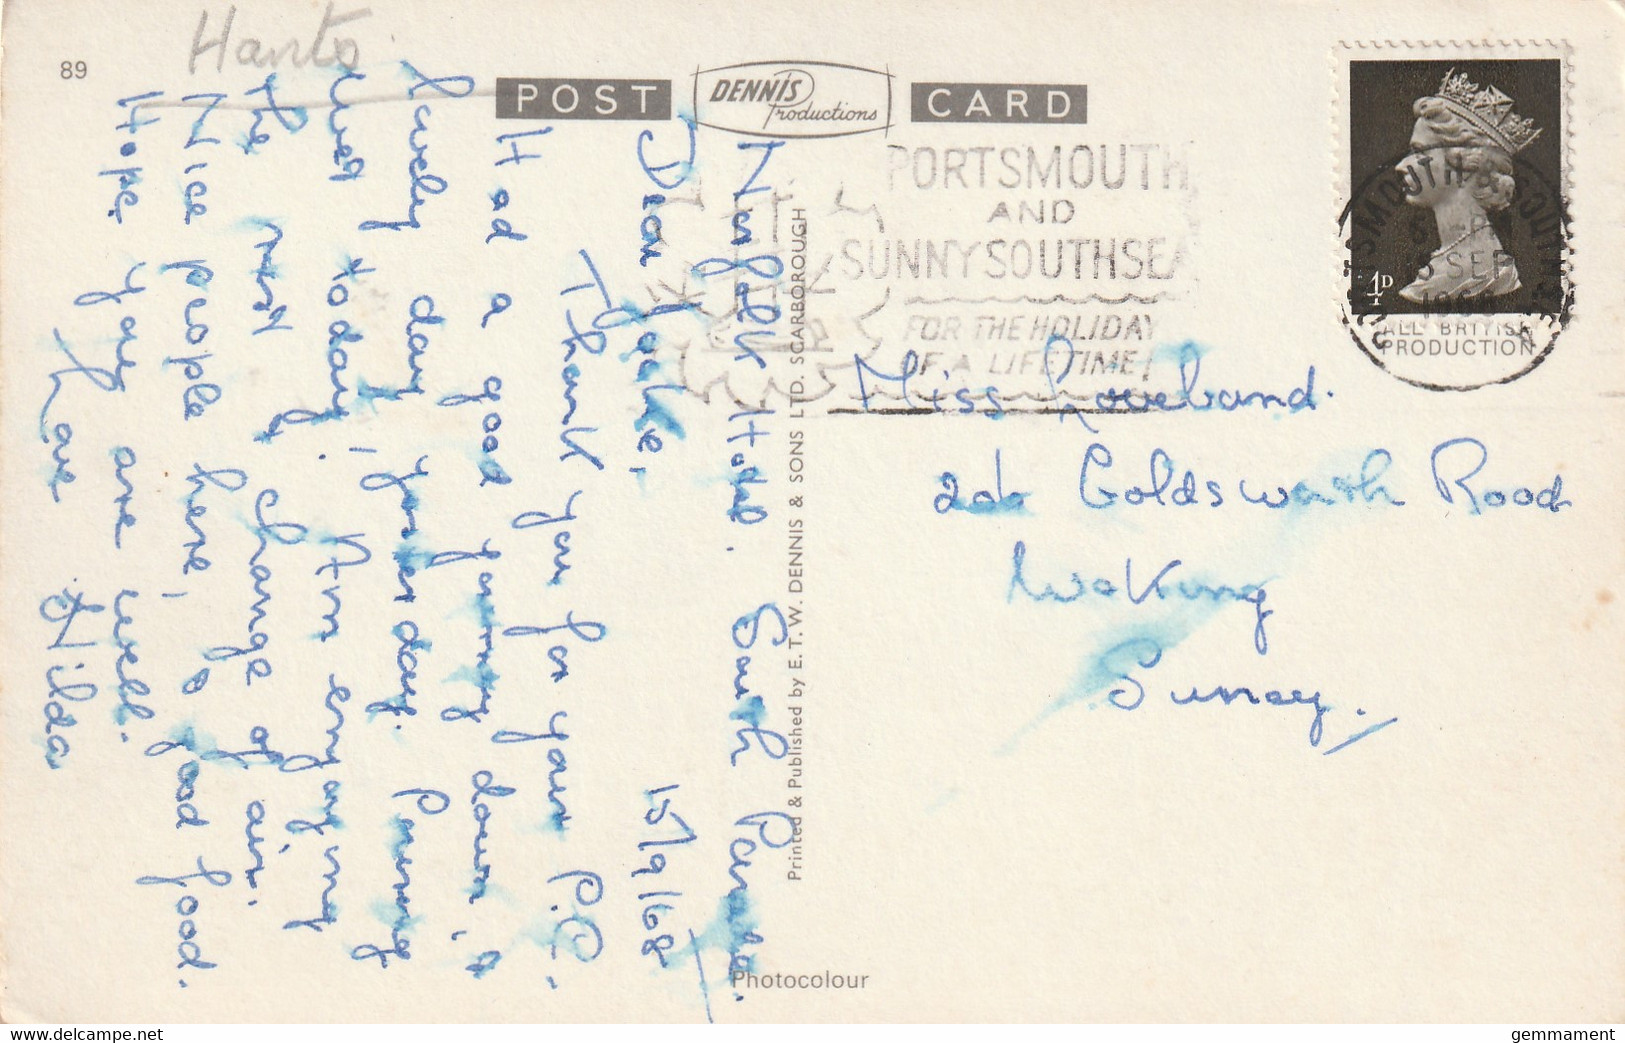 89
Hants
POST
DENNIS
Productions
CARD
PORTSMOUTH
AND
SUNNY SOUTHSEA
FOR THE HOLIDAY
OF A LIFETIME!
SEP
1968
4D
ALL BRITISH
PRODUCTION
Norfolk Hotel. South Parade.
Dear Jackie, 15/9/68
Thank you for your P.C.
Had a good journey down, &
lovely day yesterday. Pouring
wet today. Am enjoying
the rest & change of air.
Nice people here, & good food.
Hope you are well.
Love Hilda
Printed & Published by E.T.W. DENNIS & SONS LTD. SCARBOROUGH
Miss Loveband.
Goldsworth Road
Woking
Surrey.
Photocolour
www.delcampe.net
gemmament